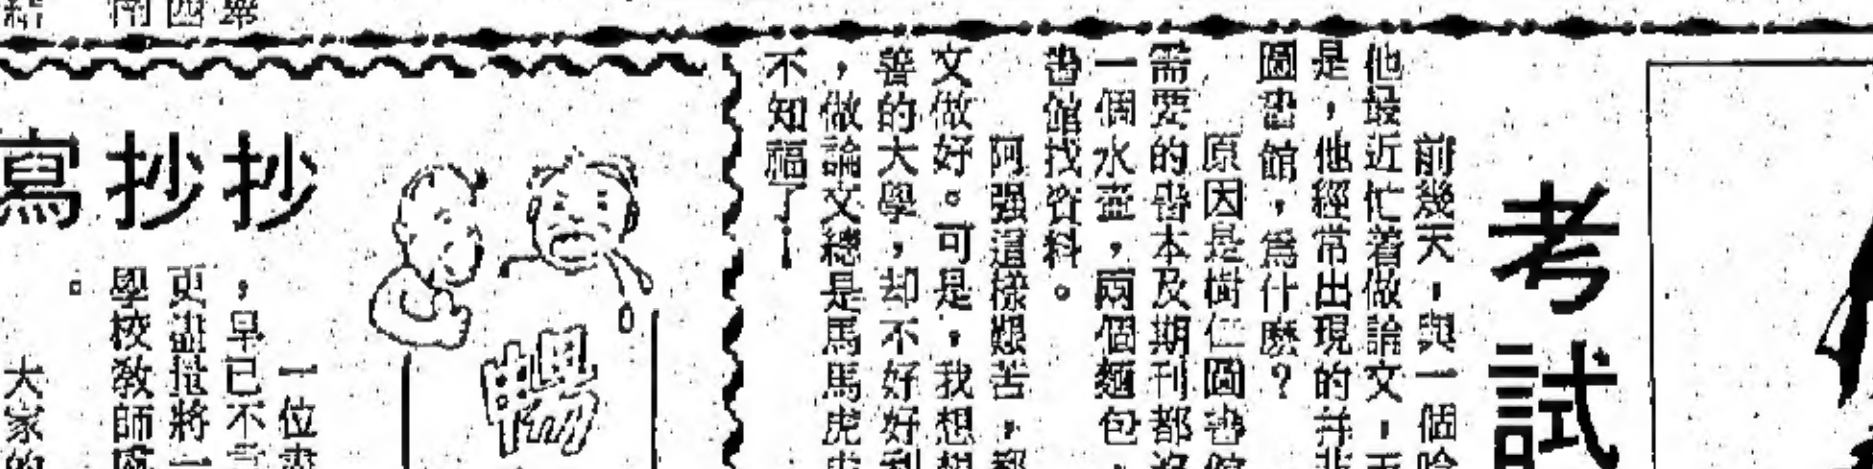 考試
前幾天，與一個
他最近忙着做論文，
是，他經常出現的并非
圖書館，爲什麽？
原因是樹仁圖書館
需要的書本及期刊都沒
一個水壺，兩個麵包，
書館找資料。
阿强這樣艱苦，都
文做好。可是，我想想
善的大學，却不好好利
，做論文總是馬馬虎虎
不知福了！
暢
抄抄寫
一位
，早已不
更盡量將一
學校教師
。
大家的
南四